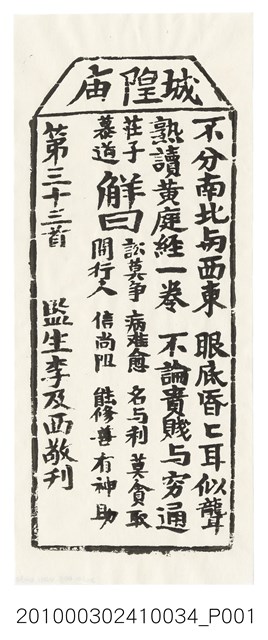 城隍庙
不分南北与西東　眼底昏〻耳似聾
熟讀黄庭經一卷　不論貴賤与穷通
莊子慕道　解曰　訟莫争　病难愈　名与利　莫貪取
問行人　信尚阻　能修善　有神助
第三十三首　監生李及西敬刋
201000302410034_P001